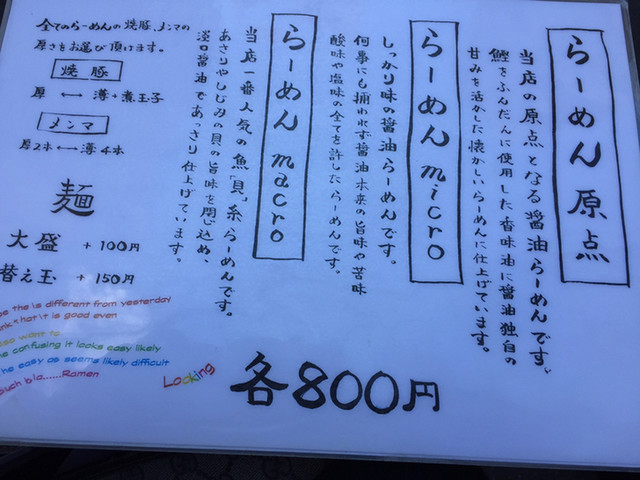 らーめん原点
当店の原点となる醤油らーめんです。
鰹をふんだんに使用した香味油に醤油独自の
甘みを活かした懐かしいらーめんに仕上げています。
らーめんmicro
しっかり味の醤油らーめんです。
何事にも捕われず醤油本来の旨味や苦味
酸味や塩味の全てを許したらーめんです。
らーめんmacro
当店一番人気の魚「貝」系らーめんです。
あさりやしじみの貝の旨味を閉じ込め、
淡口醤油であっさり仕上げています。
全てのらーめんの焼豚、メンマの
厚さをお選び頂けます。
焼豚
厚 ←→ 薄+煮玉子
メンマ
厚2本 ←→ 薄4本
麺
大盛 +100円
替え玉 +150円
the is different from yesterday
that it is good even
want to
confusing it looks easy likely
the easy as seems likely difficult
such bla......Ramen
Looking
各800円